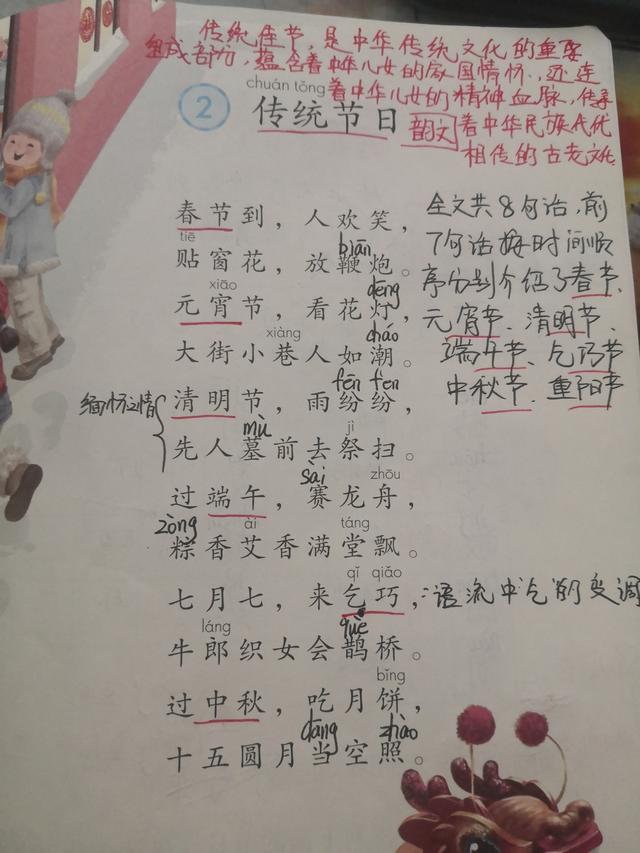 传统佳节，是中华传统文化的重要
组成部分，蕴含着中华儿女的家国情怀，还连
着中华儿女的精神血脉，传承
着中华民族代代
相传的古老文化
韵文
chuán tǒng
2 传统节日
春节到，人欢笑，
tiē biān
贴窗花，放鞭炮。
xiāo dēng
元宵节，看花灯，
xiàng cháo
大街小巷人如潮。
fēn fēn
清明节，雨纷纷，
mù jì
先人墓前去祭扫。
缅怀之情
sài zhōu
过端午，赛龙舟，
zòng ài táng
粽香艾香满堂飘。
qǐ qiǎo
七月七，来乞巧，
láng què
牛郎织女会鹊桥。
bǐng
过中秋，吃月饼，
dāng zhào
十五圆月当空照。
全文共8句话，前
7句话按时间顺
序分别介绍了春节、
元宵节、清明节、
端午节、乞巧节
中秋节、重阳节
语流中乞的变调